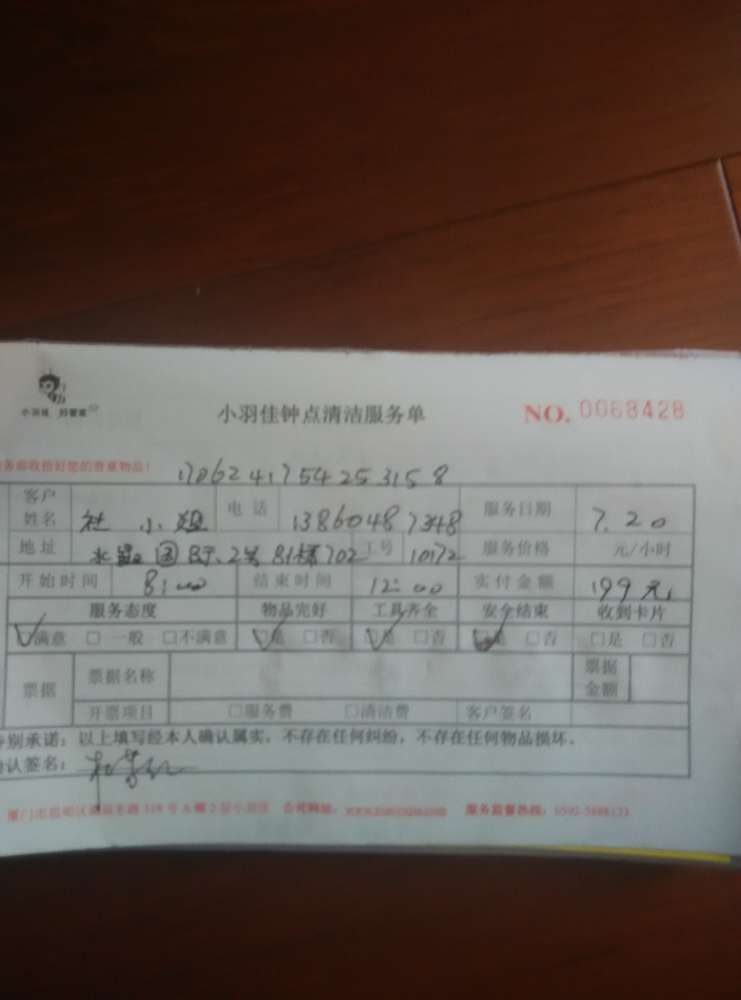 小羽佳 好管家
小羽佳钟点清洁服务单 NO. 0068428
务前收拾好您的贵重物品!
1706241754253158
客户姓名 杜小姐 电话 13860487348 服务日期 7.20
地址 2号81梯702 工号 10172 服务价格 元/小时
开始时间 8:00 结束时间 12:00 实付金额 199元
服务态度 物品完好 工具齐全 安全结束 收到卡片
满意 □一般 □不满意 是 □否 是 □否 是 □否 □是 □否
票据 票据名称 票据金额
开票项目 □服务费 □清洁费 客户签名
特别承诺:以上填写经本人确认属实,不存在任何纠纷,不存在任何物品损坏。
确认签名:
厦门市思明区 318号A幢2层小羽佳 公司网址: 服务监督热线: